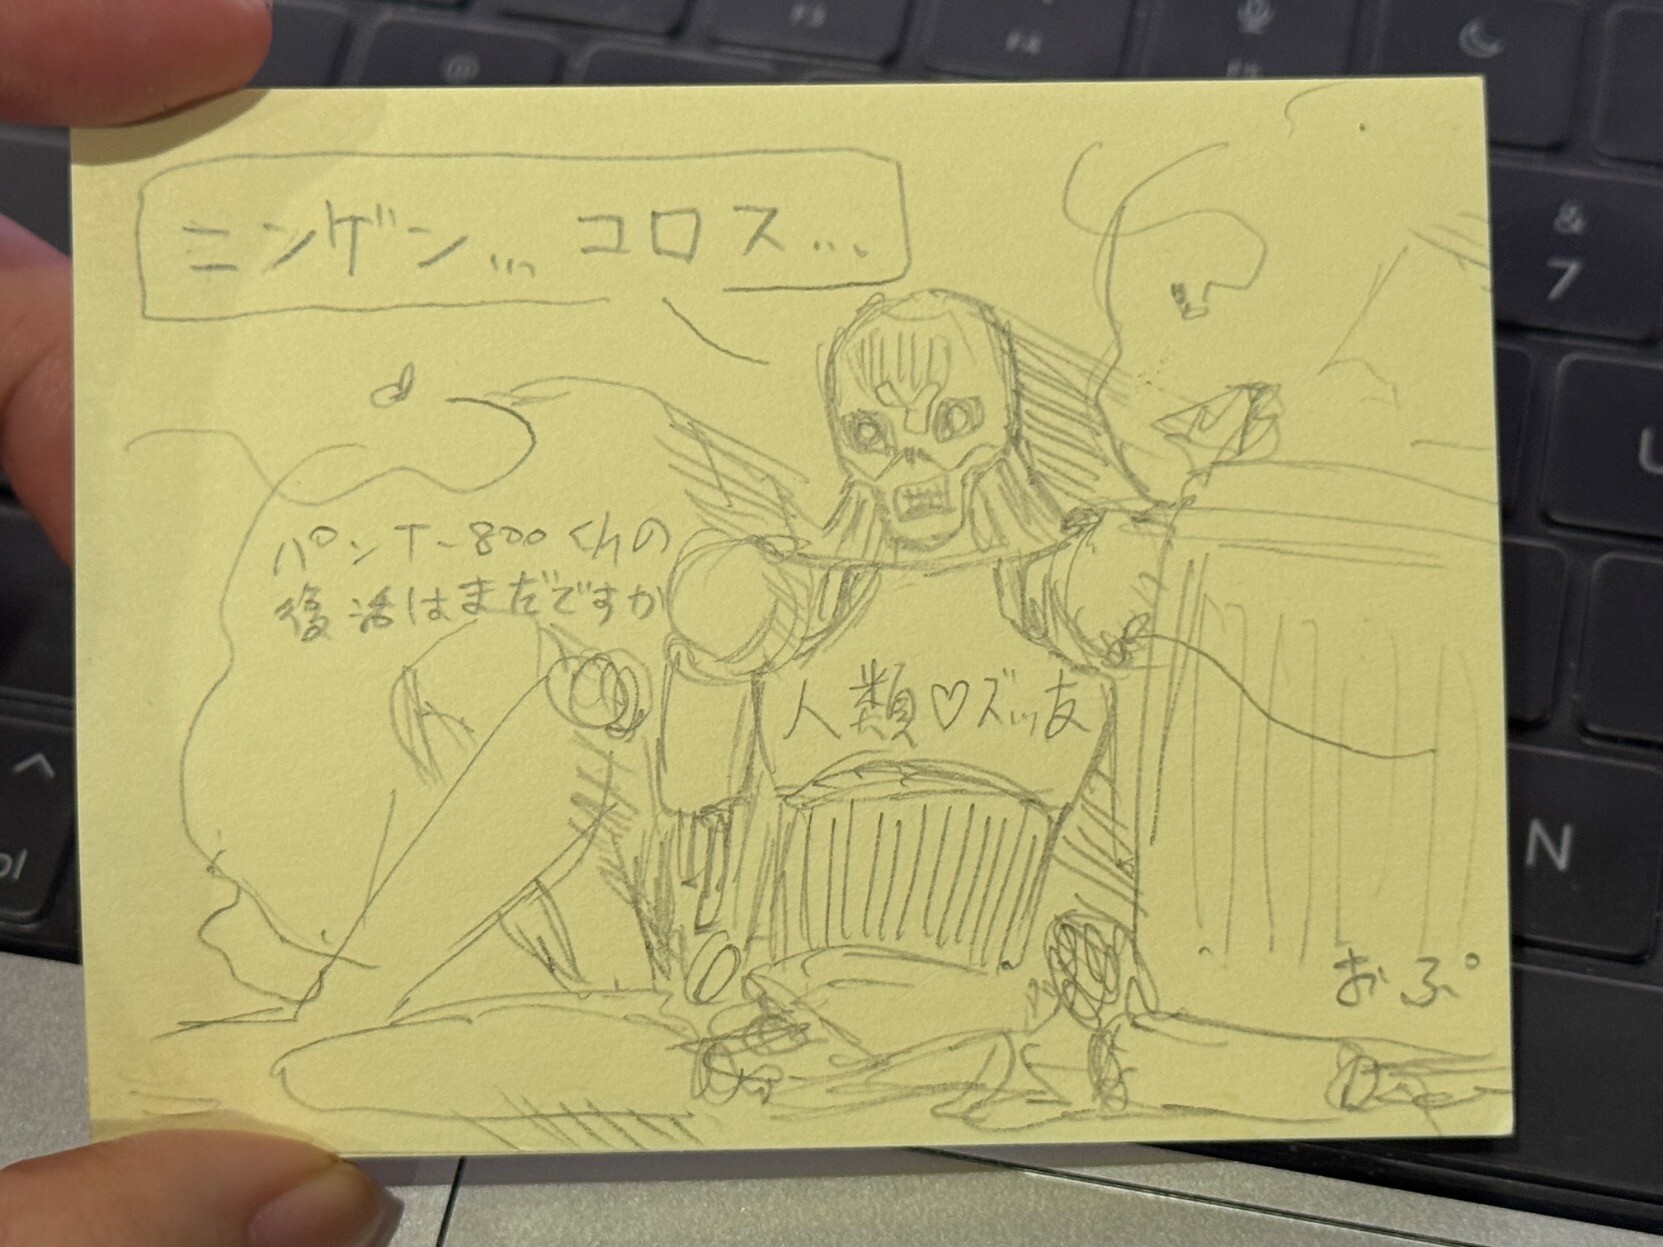 ニンゲン... コロス...
パンT-800くんの
復活はまだですか
人類♡ズッ友
おぷ
&
7
N
F3
F4
U